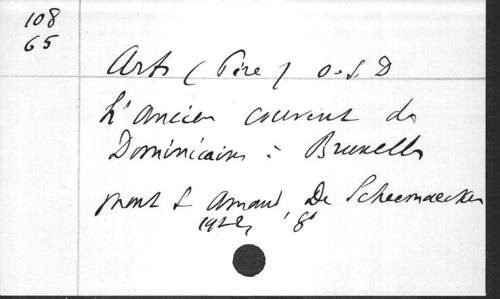 108
65
Arts (Père) O.S.D
L'Ancien couvent des
Dominicains à Bruxelles
Mont St Amand, De Scheemaecker
8°